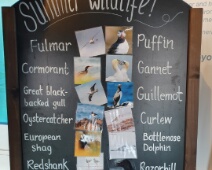 Summer wildlife!
Fulmar
Puffin
Cormorant
Gannet
Great black-
backed gull
Guillemot
Oystercatcher
Curlew
European
shag
Bottlenose
Dolphin
Redshank
Razorbill